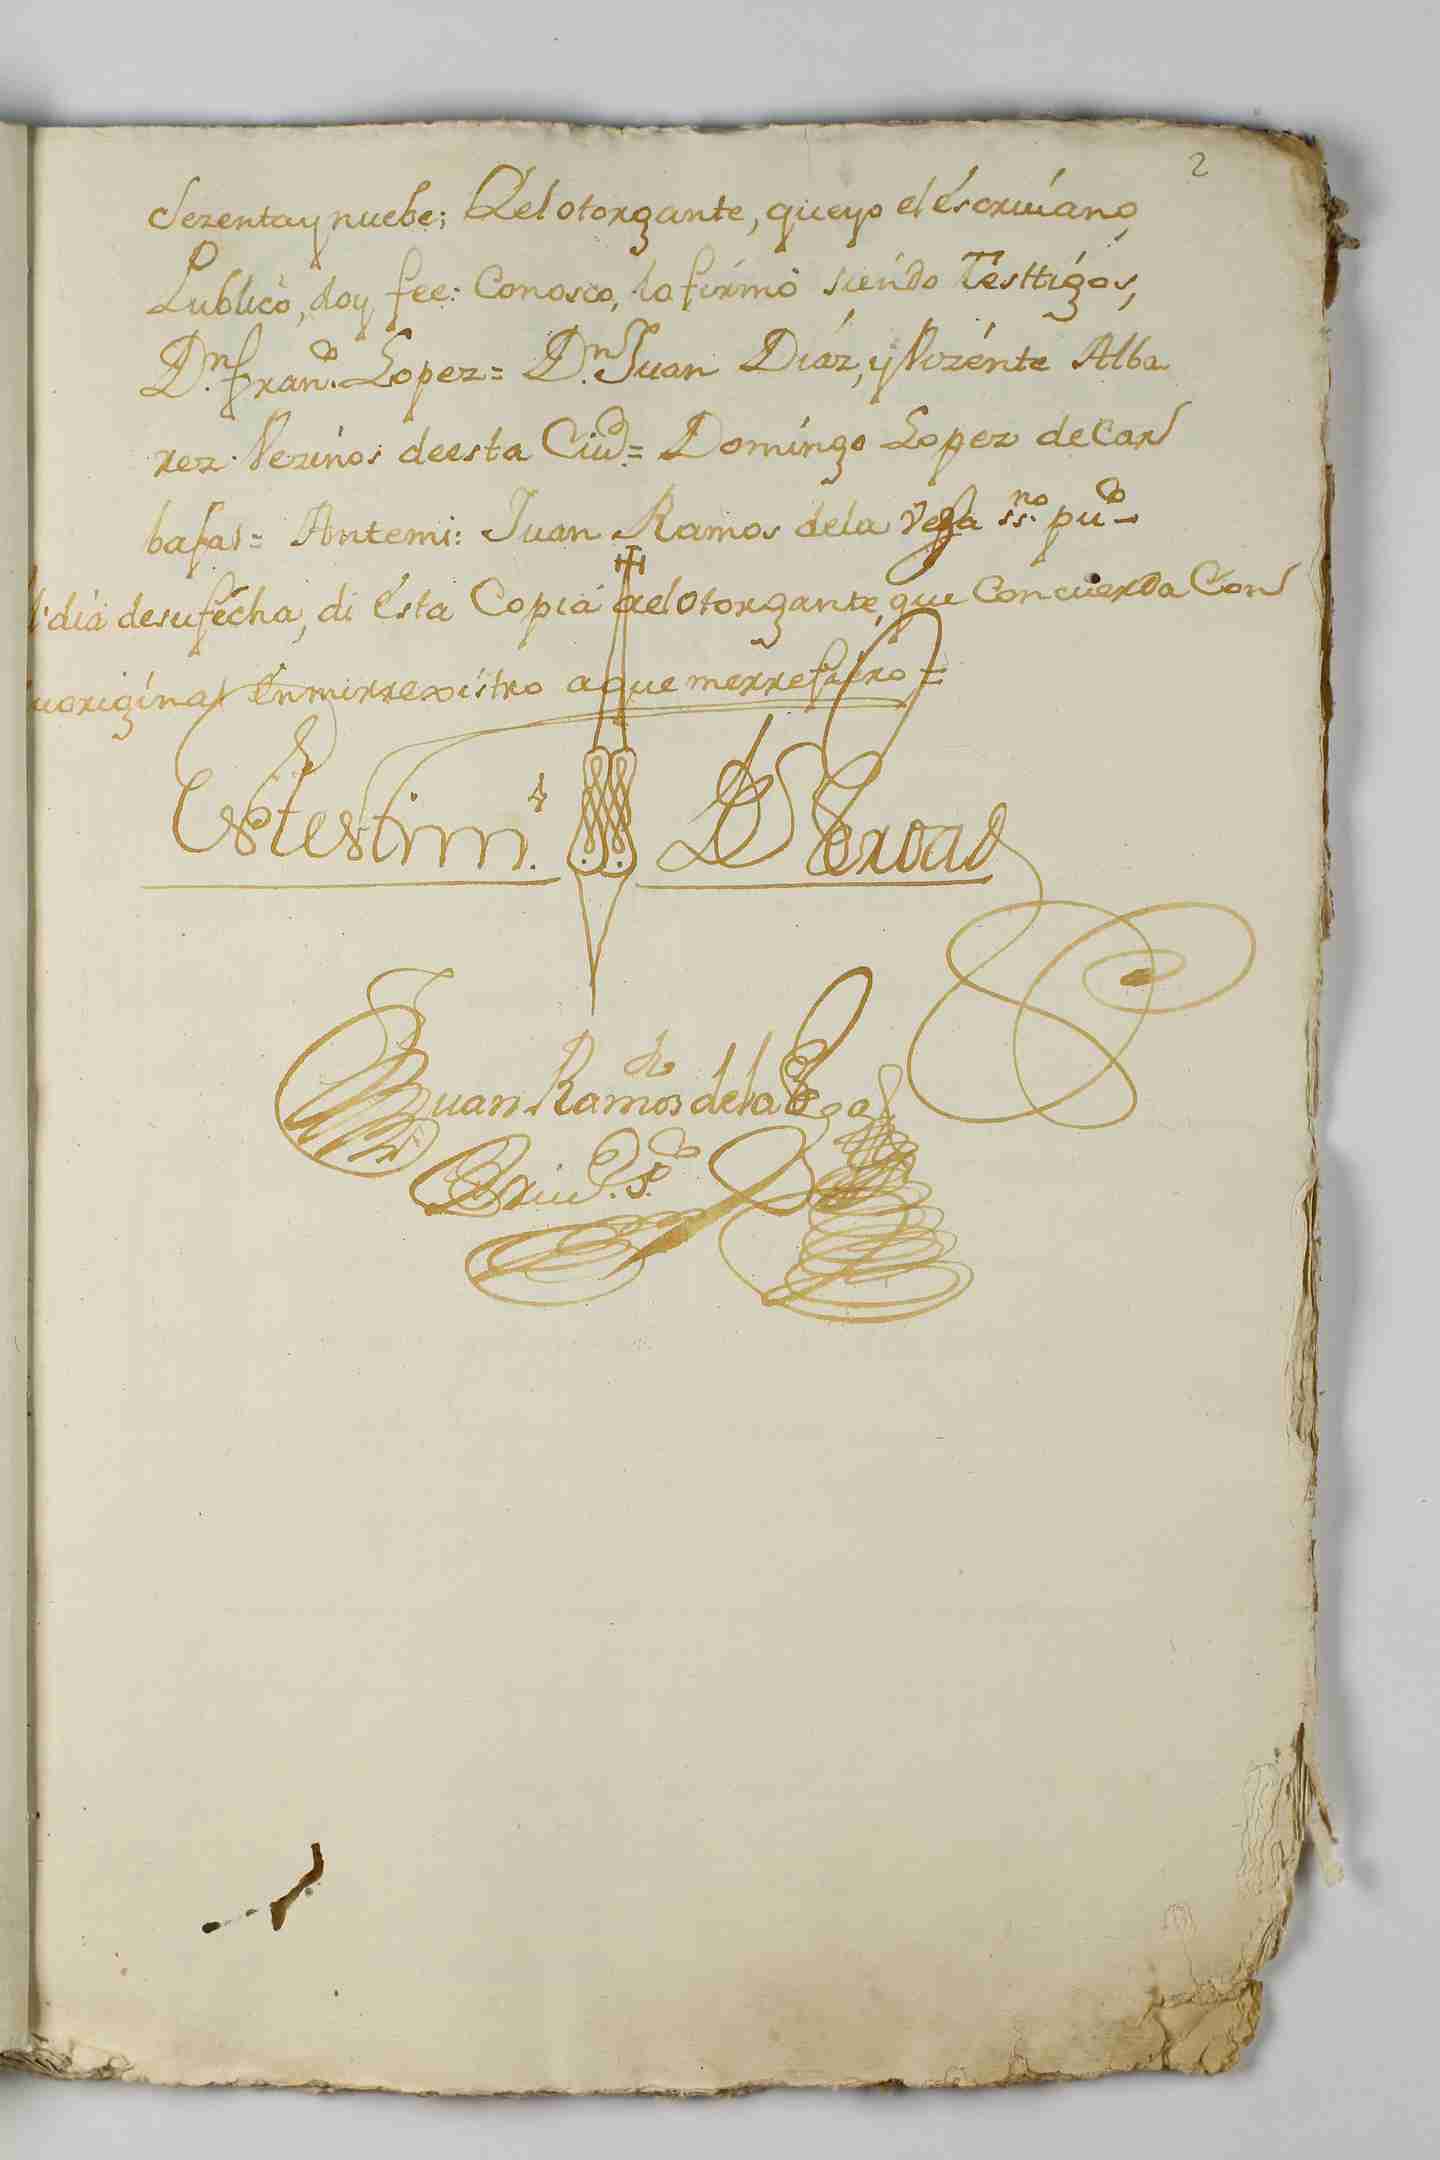 2
sezenta y nuebe; Qel otorgante, que yo el éscriuano,
Publico, doy fee: Conosco, lo firmó siendo Testtigos,
D.n Fran.co Lopez = D.n Juan Diaz, y Vizénte Alba
rez Vezinos de esta Ciud.= Domingo Lopez de Car
bafal = Antemi: Juan Ramos dela Vega ss.no pu.co
l dia desu fecha, di ésta Copia ael Otorgante, que Concuerda Con
u original én mi rrexistro a que me rrefiero =
En testim.o de Verdad
Juan Ramos dela Vega
Scriu.o P.co